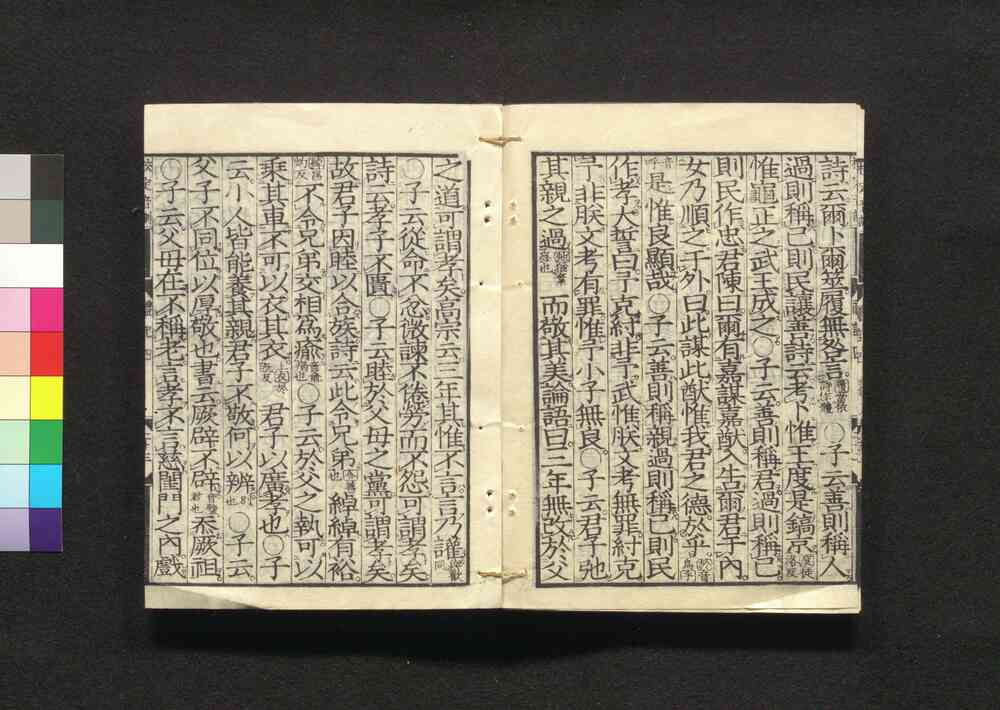 詩云爾卜爾筮履無咎言〇子云善則稱人
過則稱己則民讓善詩云考卜惟王度是鎬京
惟龜正之武王成之〇子云善則稱君過則稱己
則民作忠君陳曰爾有嘉謀嘉猷入告爾君于內
女乃順之于外曰此謀此猷惟我君之德於乎
是惟良顯哉〇子云善則稱親過則稱己則民
作孝大誓曰予克紂非予武惟朕文考無罪紂克
予非朕文考有罪惟予小子無良〇子云君子弛
其親之過而敬其美論語曰三年無改於父
之道可謂孝矣高宗云三年其惟不言言乃讙
〇子云從命不忿微諫不倦勞而不怨可謂孝矣
詩云孝子不匱〇子云睦於父母之黨可謂孝矣
故君子因睦以合族詩云此令兄弟綽綽有裕
不令兄弟交相為瘉〇子云於父之執可以
乘其車不可以衣其衣君子以廣孝也〇子
云小人皆能養其親君子不敬何以辨〇子云
父子不同位以厚敬也書云厥辟不辟忝厥祖
〇子云父母在不稱老言孝不言慈閨門之內戲